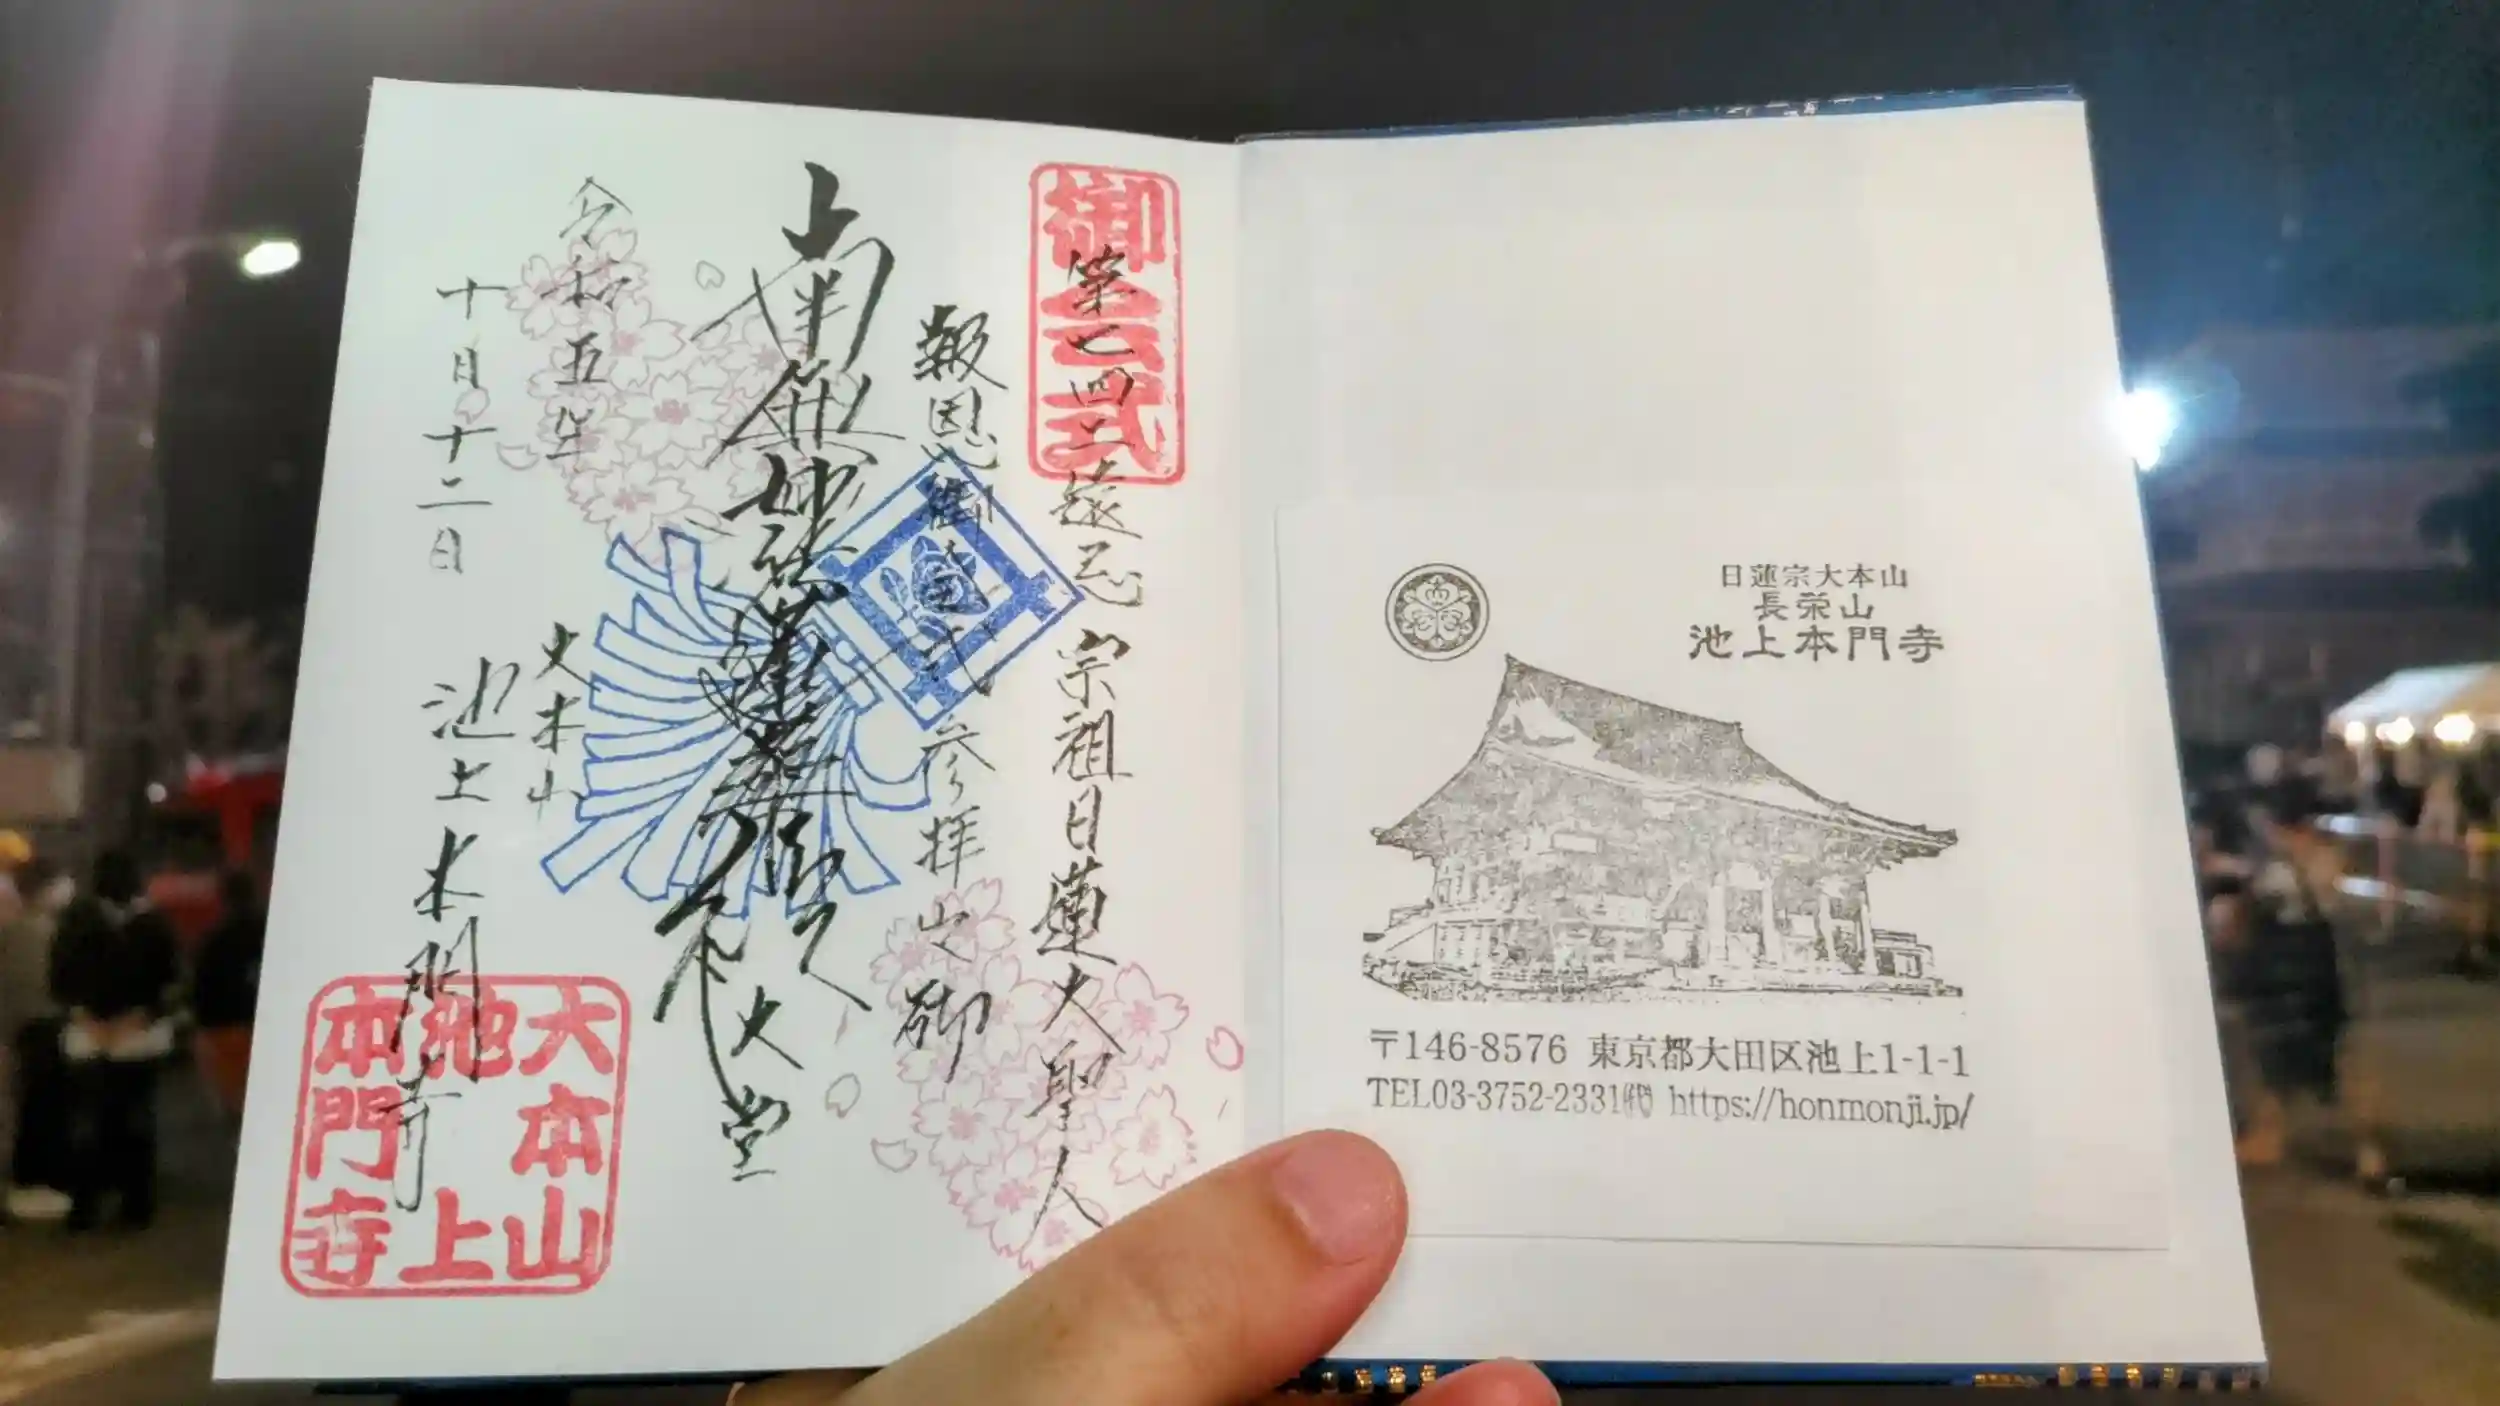 御会式
第七四二遠忌 宗祖日蓮大聖人
報恩御会式 参拝之砌
南無妙法蓮華経
大堂
令和五年
十月十二日
大本山
池上本門寺
大本山
池上
本門寺
日蓮宗大本山
長栄山
池上本門寺
〒146-8576 東京都大田区池上1-1-1
TEL03-3752-2331㈹ https://honmonji.jp/